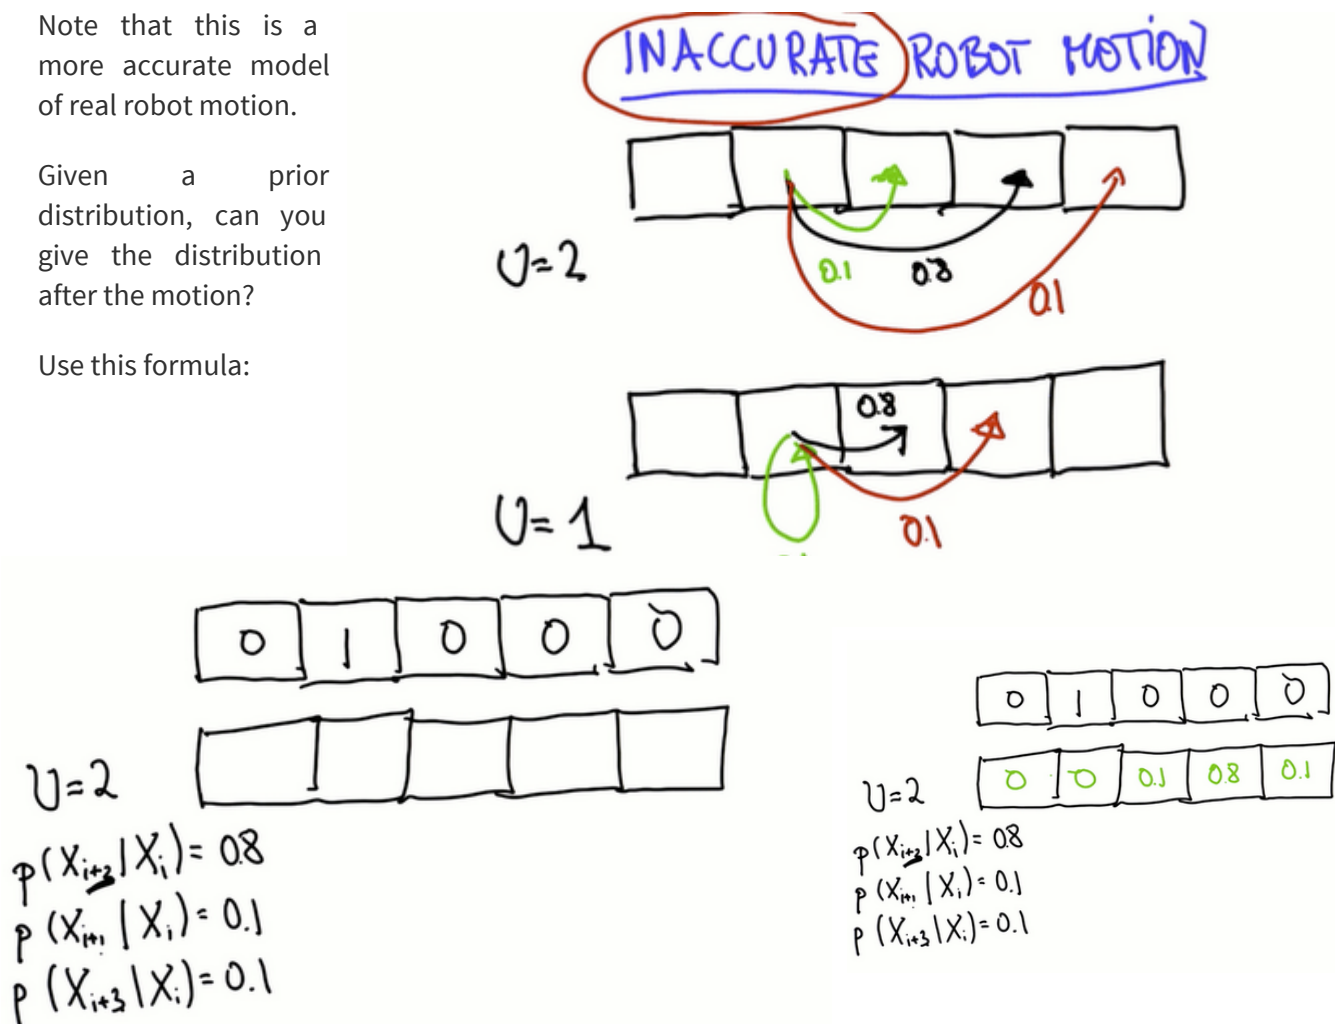 Note that this is a
more accurate model
of real robot motion.
Given a prior
distribution, can you
give the distribution
after the motion?
Use this formula:
INACCURATE ROBOT MOTION
U=2
0.1
0.8
0.1
0.8
U=1
0.1
0 1 0 0 0
U=2
p(Xi+2|Xi)=0.8
p(Xi+1|Xi)=0.1
p(Xi+3|Xi)=0.1
0 1 0 0 0
0 0 0.1 0.8 0.1
U=2
p(Xi+2|Xi)=0.8
p(Xi+1|Xi)=0.1
p(Xi+3|Xi)=0.1